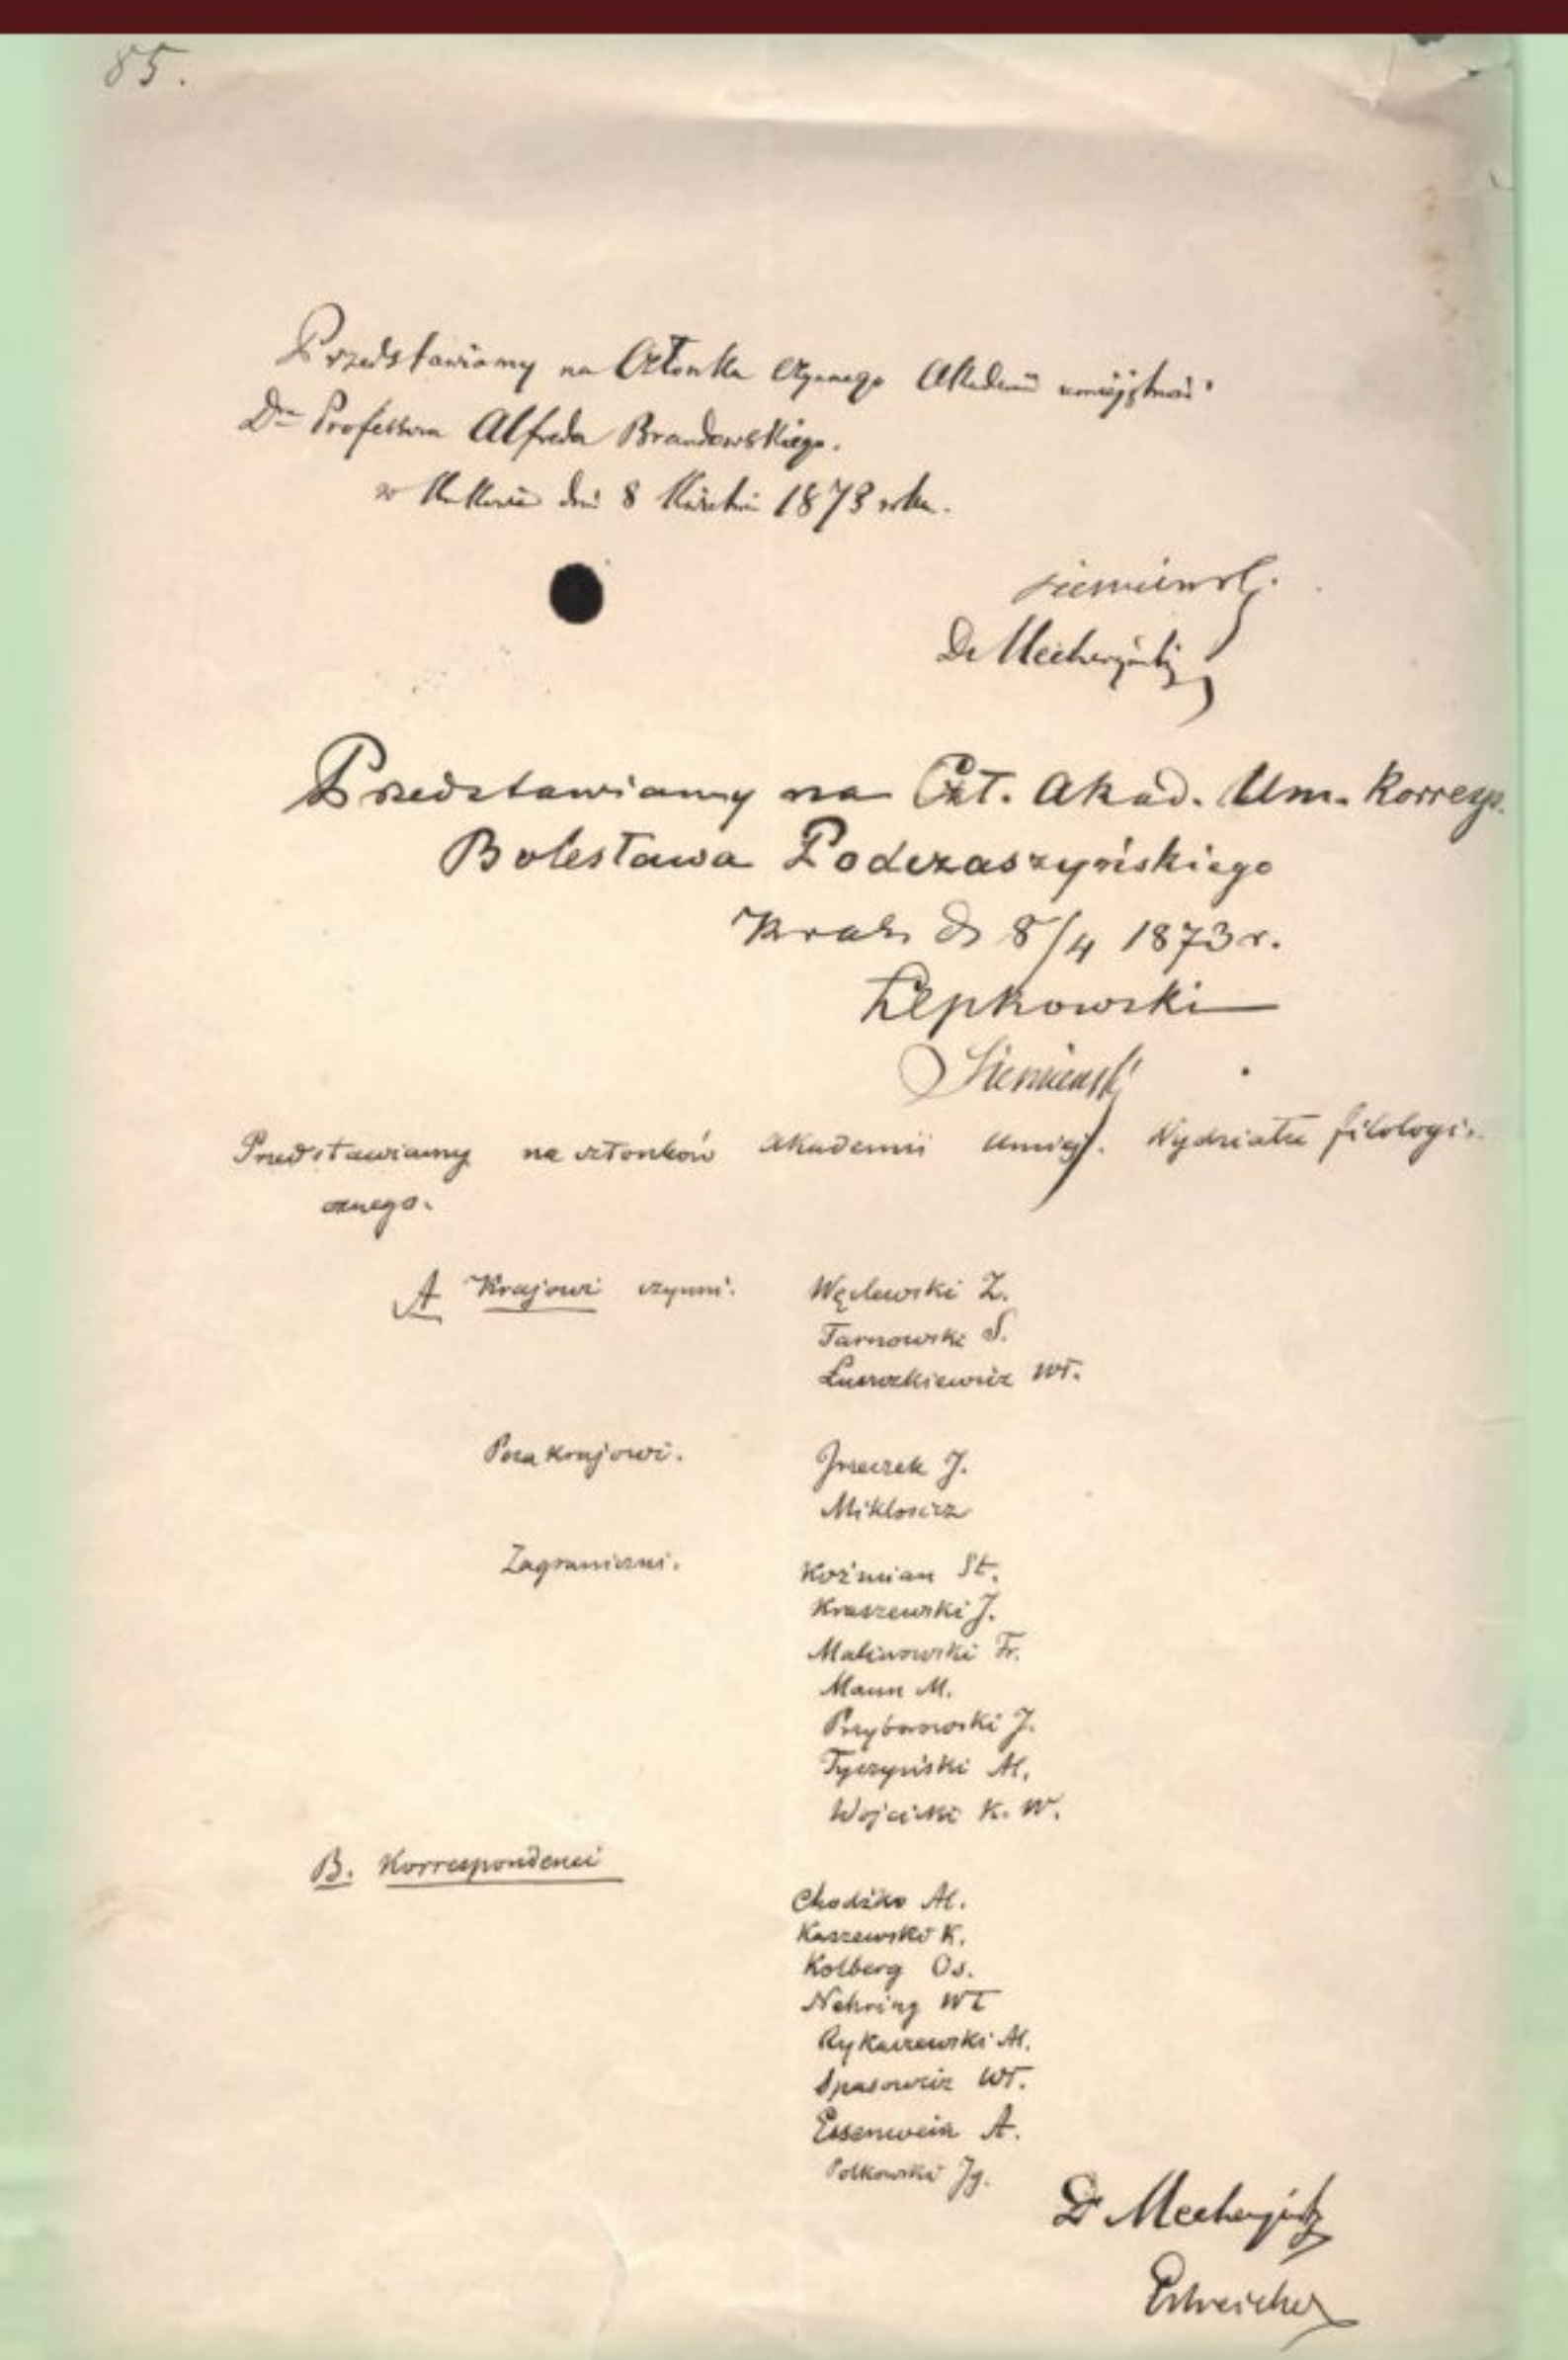 85.
Przedstawiamy na Członka Czynnego Akademii umiejętności
Dra Professora Alfreda Brandowskiego.
w Krakowie dni 8 Kwietni 1873 roku.
Siemieński
Dr Mecherzyński
Przedstawiamy na Czł. Akad. Um. Korresp.
Bolesława Podczaszyńskiego
Krak. d 8/4 1873 r.
Łepkowski
Siemieński
Przedstawiamy na członków Akademii Umiej. Wydziału filologi-
cznego.
A Krajowi czynni. Węclewski Z.
Tarnowski S.
Łuszczkiewicz Wł.
Poza krajowi. Jireczek J.
Miklosicz
Zagraniczni. Koźmian St.
Kraszewski J.
Malinowski Fr.
Mann M.
Przyborowski J.
Tyszyński Al.
Wojcicki K. W.
B. Korrespondenci
Chodźko Al.
Kaszewski K.
Kolberg Os.
Nehring Wł
Rykaczewski Al.
Spasowicz Wł.
Essenwein A.
Polkowski Ig.
Dr Mecherzyński
Estreicher